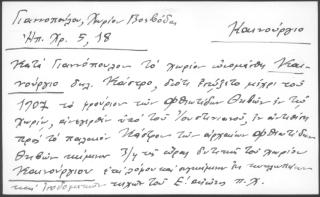 Γιαννοπούλου, Χωρίον Βοεβόδα
Καινούργιο
Ηπ. Χρ. 5, 18
Κατά Γιαννόπουλον τό χωρίον ὠνομάσθη Και-
νούργιο δηλ. Κάστρο, διότι ἐσώζετο μέχρι τοῦ
1907 τό φρούριον τῶν Φθιωτίδων Θηβῶν ἐν τῷ
χωρίῳ, ἀνεγερθέν ὑπό τοῦ Ἰουστινιανοῦ, ἐν ἀντιθέσει
πρός τό παλαιόν Κάστρον τῶν ἀρχαίων Φθιωτίδων
Θηβῶν κείμενον 3/4 τῆς ὥρας δυτικά τοῦ χωρίου
Καινούργιον ἐπί λόφου καί
καί τειχῶν τοῦ Ε' αἰῶνος π.Χ.